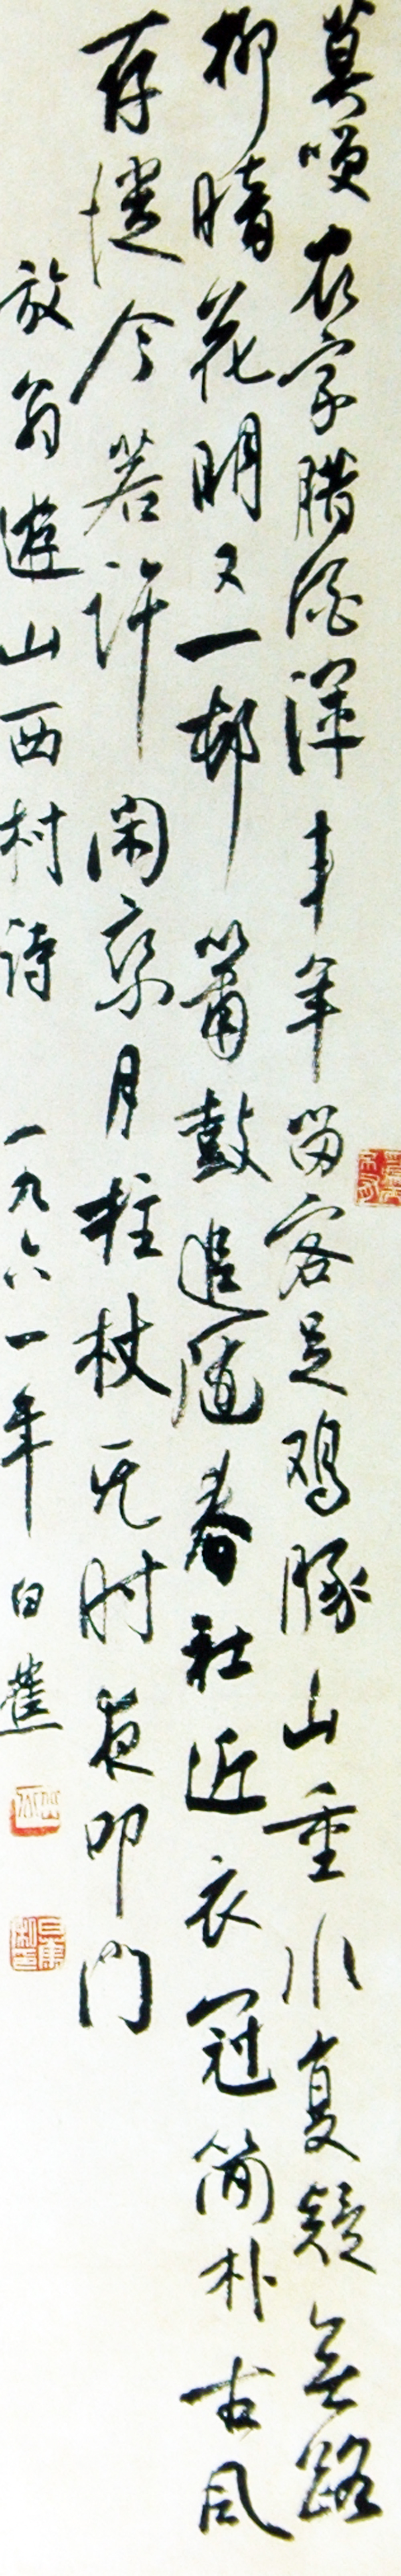 莫咲农家腊酒浑丰年留客足鸡豚山重水复疑無路
柳暗花明又一邨箫鼓追随春社近衣冠简朴古风
存從今若许闲乘月拄杖无时夜叩门
放翁遊山西村诗 一九六一年 白蕉